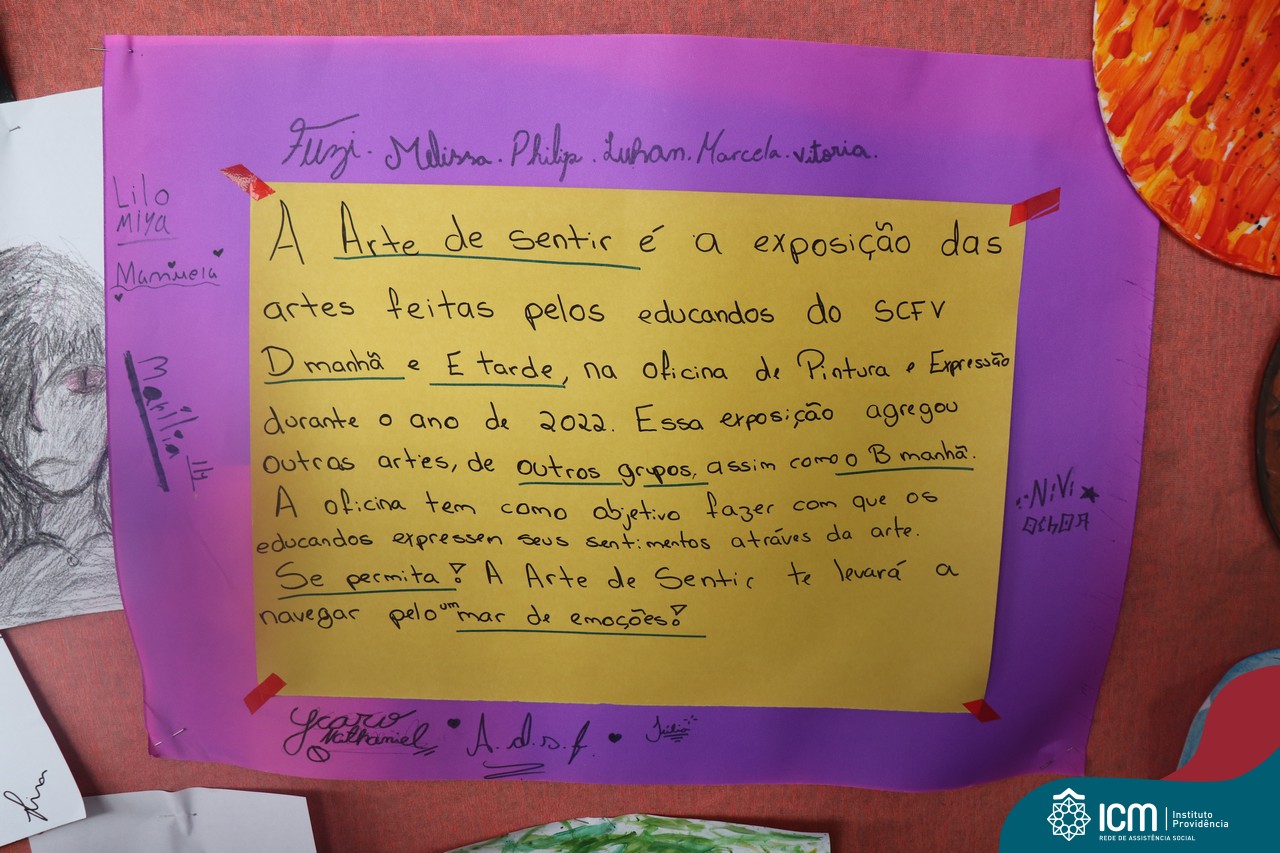 Fuzi. Melissa. Philip. Luhan. Marcela. vitoria.
Lilo
MIYA
Manuela
Marília
A Arte de sentir é a exposição das
artes feitas pelos educandos do SCFV
D manhã e E tarde, na oficina de Pintura e Expressão
durante o ano de 2022. Essa exposição agregou
outras artes, de outros grupos, assim como o B manhã.
A oficina tem como objetivo fazer com que os
educandos expressem seus sentimentos atráves da arte.
Se permita! A Arte de Sentir te levará a
navegar pelo um mar de emoções!
NiVi
OCHOA
Ycaro
Nathaniel
A.d.s.f
Júlia
ICM Instituto Providência
REDE DE ASSISTÊNCIA SOCIAL